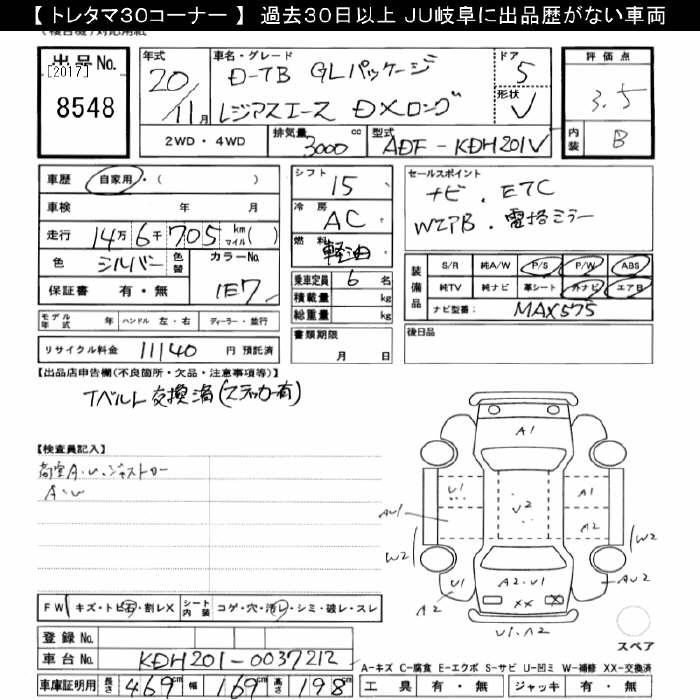 【 トレタマ30コーナー 】 過去30日以上 JU岐阜に出品歴がない車両
出品No.
[2017]
8548
年式
20/11月
車名・グレード
D-TB GLパッケージ
レジアスエース DXロング
ドア
5
形状
V
評価点
3.5
内装
B
2WD・4WD
排気量
3000 cc
型式
ADF-KDH201V
車歴
自家用・( )
車検 年 月
走行 14万6千705 km マイル( )
色 シルバー 色替
カラーNo.
1E7
保証書 有・無
シフト
15
冷房
AC
燃料
軽油
乗車定員 6 名
積載量 kg
総重量 kg
セールスポイント
ナビ . ETC
WエアB . 電格ミラー
装備品
S/R 純A/W P/S P/W ABS
純TV 純ナビ 革シート 外ナビ エアB
ナビ型番: MAX575
モデル年式 年 ハンドル 左・右 ディーラー・並行
リサイクル料金 11140 円 預託済
書類期限
月 日
後日品
【出品店申告欄(不良箇所・欠品・注意事項等)】
Tベルト交換済(ステッカー有)
【検査員記入】
A・U
FW キズ・トビ石・割レX シート内装 コゲ・穴・汚レ・シミ・破レ・スレ
登録No.
車台No. KDH201-0037212
車庫証明用 長さ 469cm 幅 169cm 高さ 198cm
A1
U1
V2
A1
A2
AU1
W2
W2
U1
A2
A2・U1
XX
X
AU2
U1・A2
スペア
A-キズ C-腐食 E-エクボ S-サビ U-凹ミ W-補修 XX-交換済
工具 有・無 ジャッキ 有・無